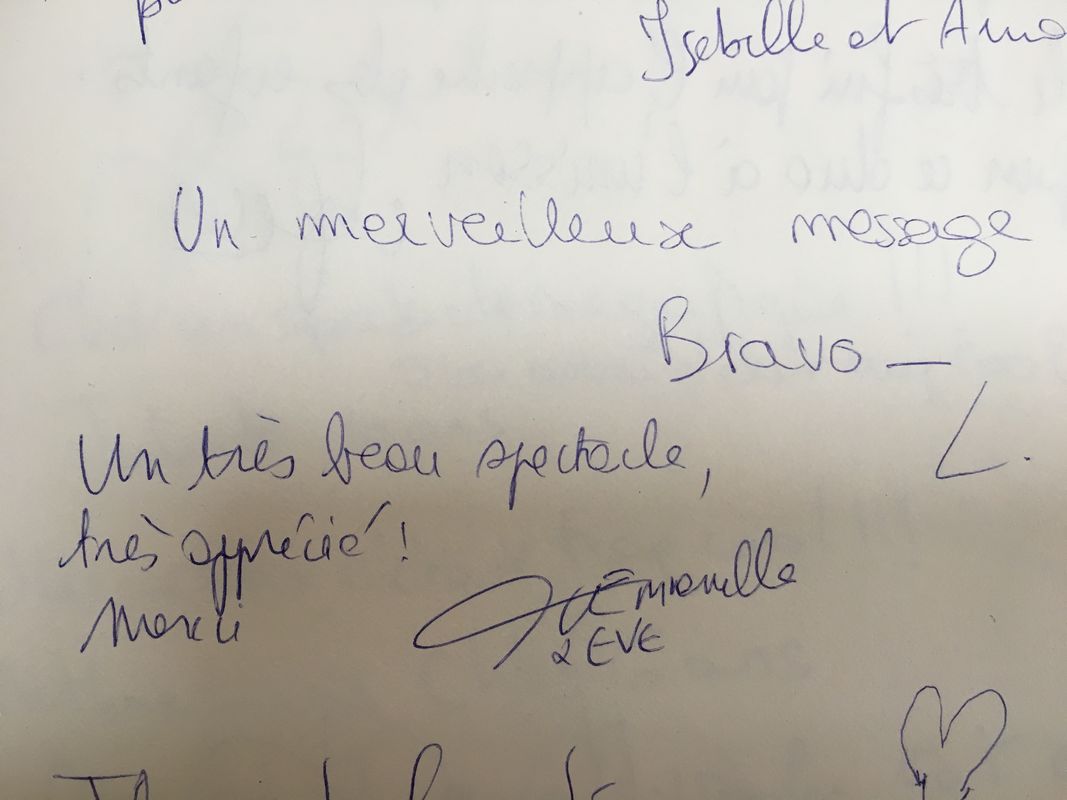 Isabelle et
Un merveilleux message
Bravo —
L.
Un très beau spectacle,
très apprécié !
Merci
& EVE